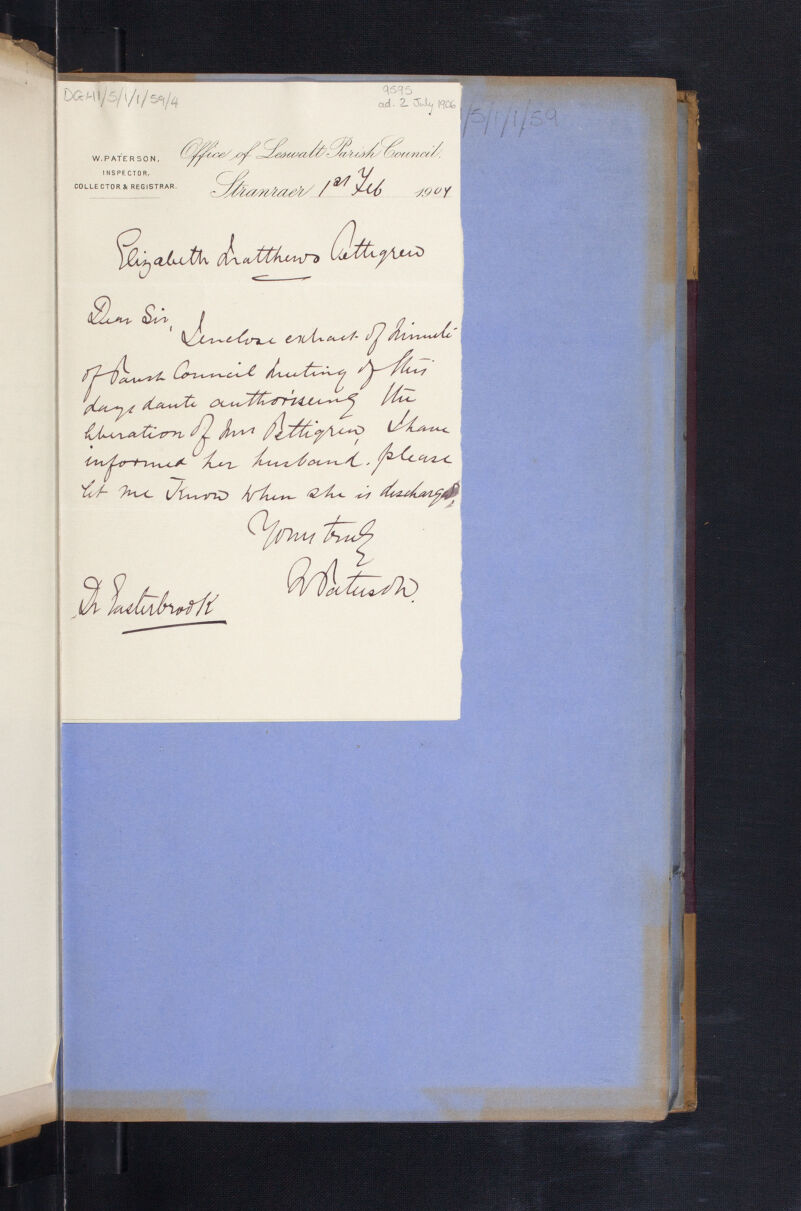 DGH1/5/1/1/59/4
9595
ad. 2 July 1906
/5/1/1/59
W. PATERSON,
INSPECTOR,
COLLECTOR & REGISTRAR.
Office of Leswalt Parish Council,
Stranraer 1st Feb 1907
Elizabeth Matthews Pettigrew
Dear Sir,
I enclose extract of Minute
of Parish Council Meeting of this
days date authoriseing the
liberation of Mrs Pettigrew, I have
informed her husband. Please
let me Know when she is discharged,
Yours truly
W Paterson.
Dr Easterbrook